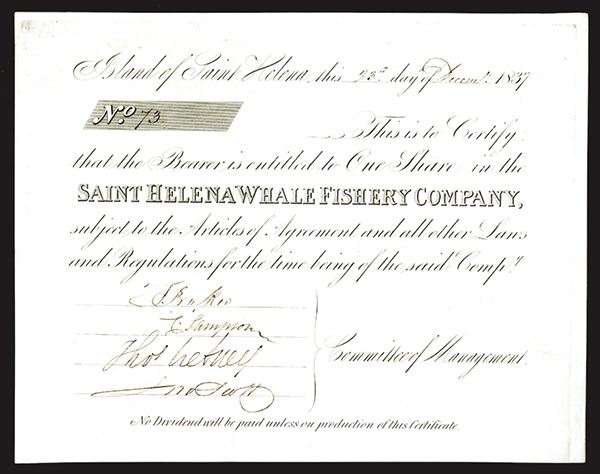 Island of Saint Helena, this 23rd day of Decemr. 1837
No. 73
This is to Certify
that the Bearer is entitled to One Share in the
SAINT HELENA WHALE FISHERY COMPANY,
subject to the Articles of Agreement and all other Laws
and Regulations for the time being of the said Compy.
Committee of Management
Jno Scott
No Dividend will be paid unless on production of this Certificate.